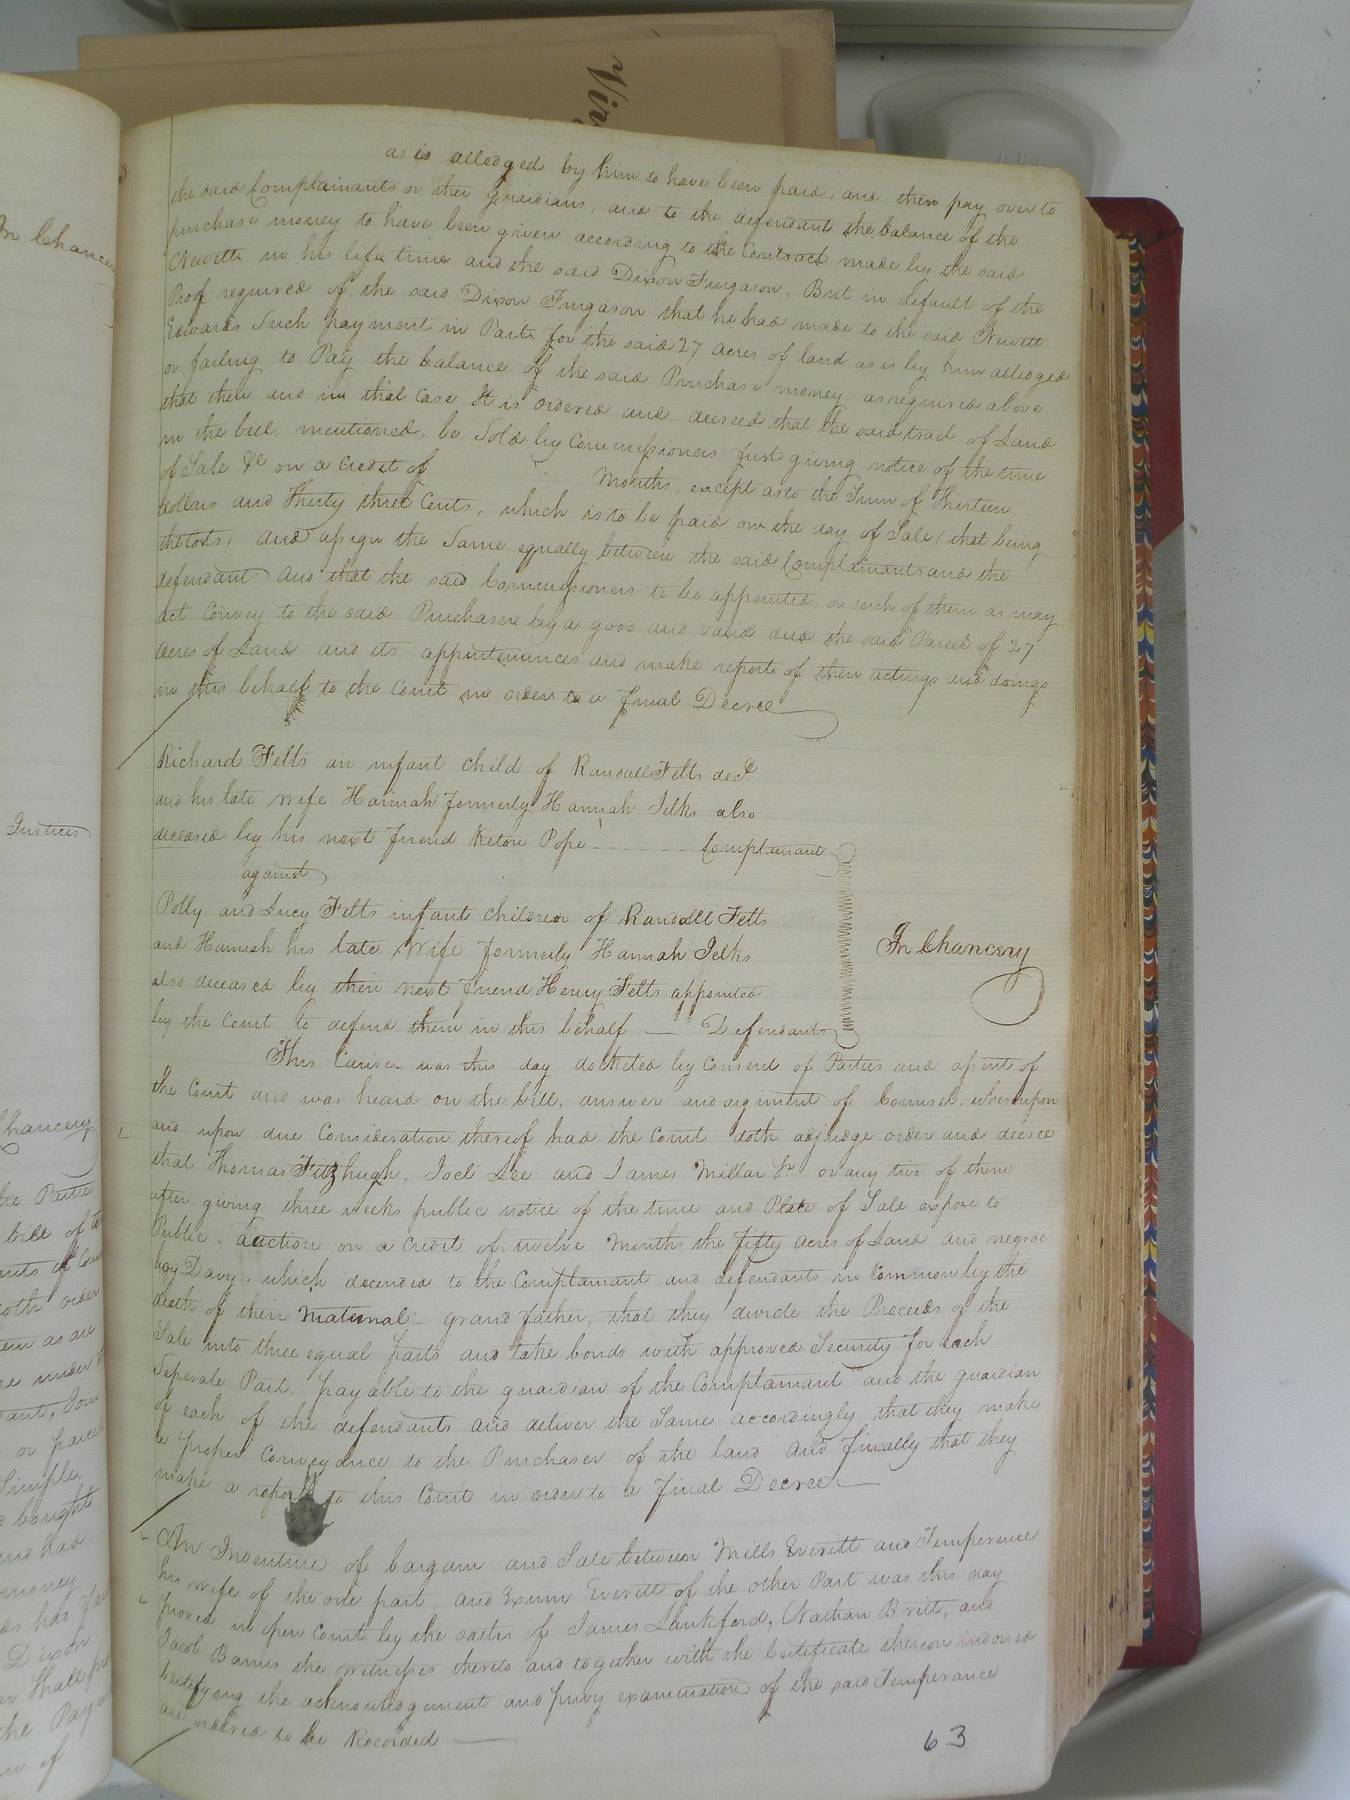 as is alledged by him to have been paid, and then pay over to
the said Complainants or their guardians, and to the defendant the balance of the
purchase money to have been given according to the Contract made by the said
Newitt in his life time and the said Dixon Furgason, But in default of the
Proof required of the said Dixon Furgason that he had made to the said Newitt
Edwards Such payment in Part for the said 27 acres of land as is by him alledged
or failing to Pay the balance of the said Purchase money as required above
that then and in that case It is ordered and decreed that the said tract of Land
in the bill mentioned, be Sold by Commissioners first giving notice of the time
of Sale &c on a Credit of Months, except as to the Sum of Thirteen
dollars and thirty three Cents, which is to be paid on the day of Sale (that being
the Costs) and assign the Same equally between the said Complainants and the
defendant and that the said Commissioners to be appointed, or such of them as may
act Convey to the said Purchaser by a good and valid deed the said Parcel of 27
acres of Land and its appurtenances and make report of their actings and doings
in this behalf to the Court in order to a final Decree
Richard Felts an infant child of Randall Felts decd.
and his late wife Hannah formerly Hannah Jelks also
deceased by his next friend Keton Pope Complainant
against
Polly and Lucy Felts infant children of Randall Felts
and Hannah his late Wife formerly Hannah Jelks
also deceased by their next friend Henry Felts appointed
by the Court to defend them in this behalf — Defendants
In Chancery
This Cause was this day docketed by Consent of Parties and assent of
the Court and was heard on the bill, answer and argument of Counsel, whereupon
and upon due Consideration thereof had the Court doth adjudge order and decree
that Thomas Fitzhugh, Joel Lee and James Millar Sr or any two of them
after giving three weeks public notice of the time and Place of Sale expose to
Public auction on a Credit of twelve Months the fifty acres of Land and negroe
boy Davy, which decended to the Complainant and defendants in Common by the
death of their Maternal grand father, that they divide the Proceeds of the
Sale into three equal parts and take bonds with approved Security for each
Seperate Part, payable to the guardian of the Complainant and the guardian
of each of the defendants and deliver the Same accordingly that they make
a proper Conveyance to the Purchaser of the land and finally that they
make a report to this Court in order to a final Decree —
An Indenture of bargain and Sale between Mills Everitt and Temperence
his wife of the one part, and Exum Everitt of the other Part was this day
proved in open Court by the oaths of James Lankford, Nathan Britt, and
Jacob Barnes the witnesses thereto and together with the Certificate thereon indorsed
Certifying the acknowledgement and privy examination of the said Temperance
are ordered to be Recorded —
63
In Chancery
Justices
Chancery